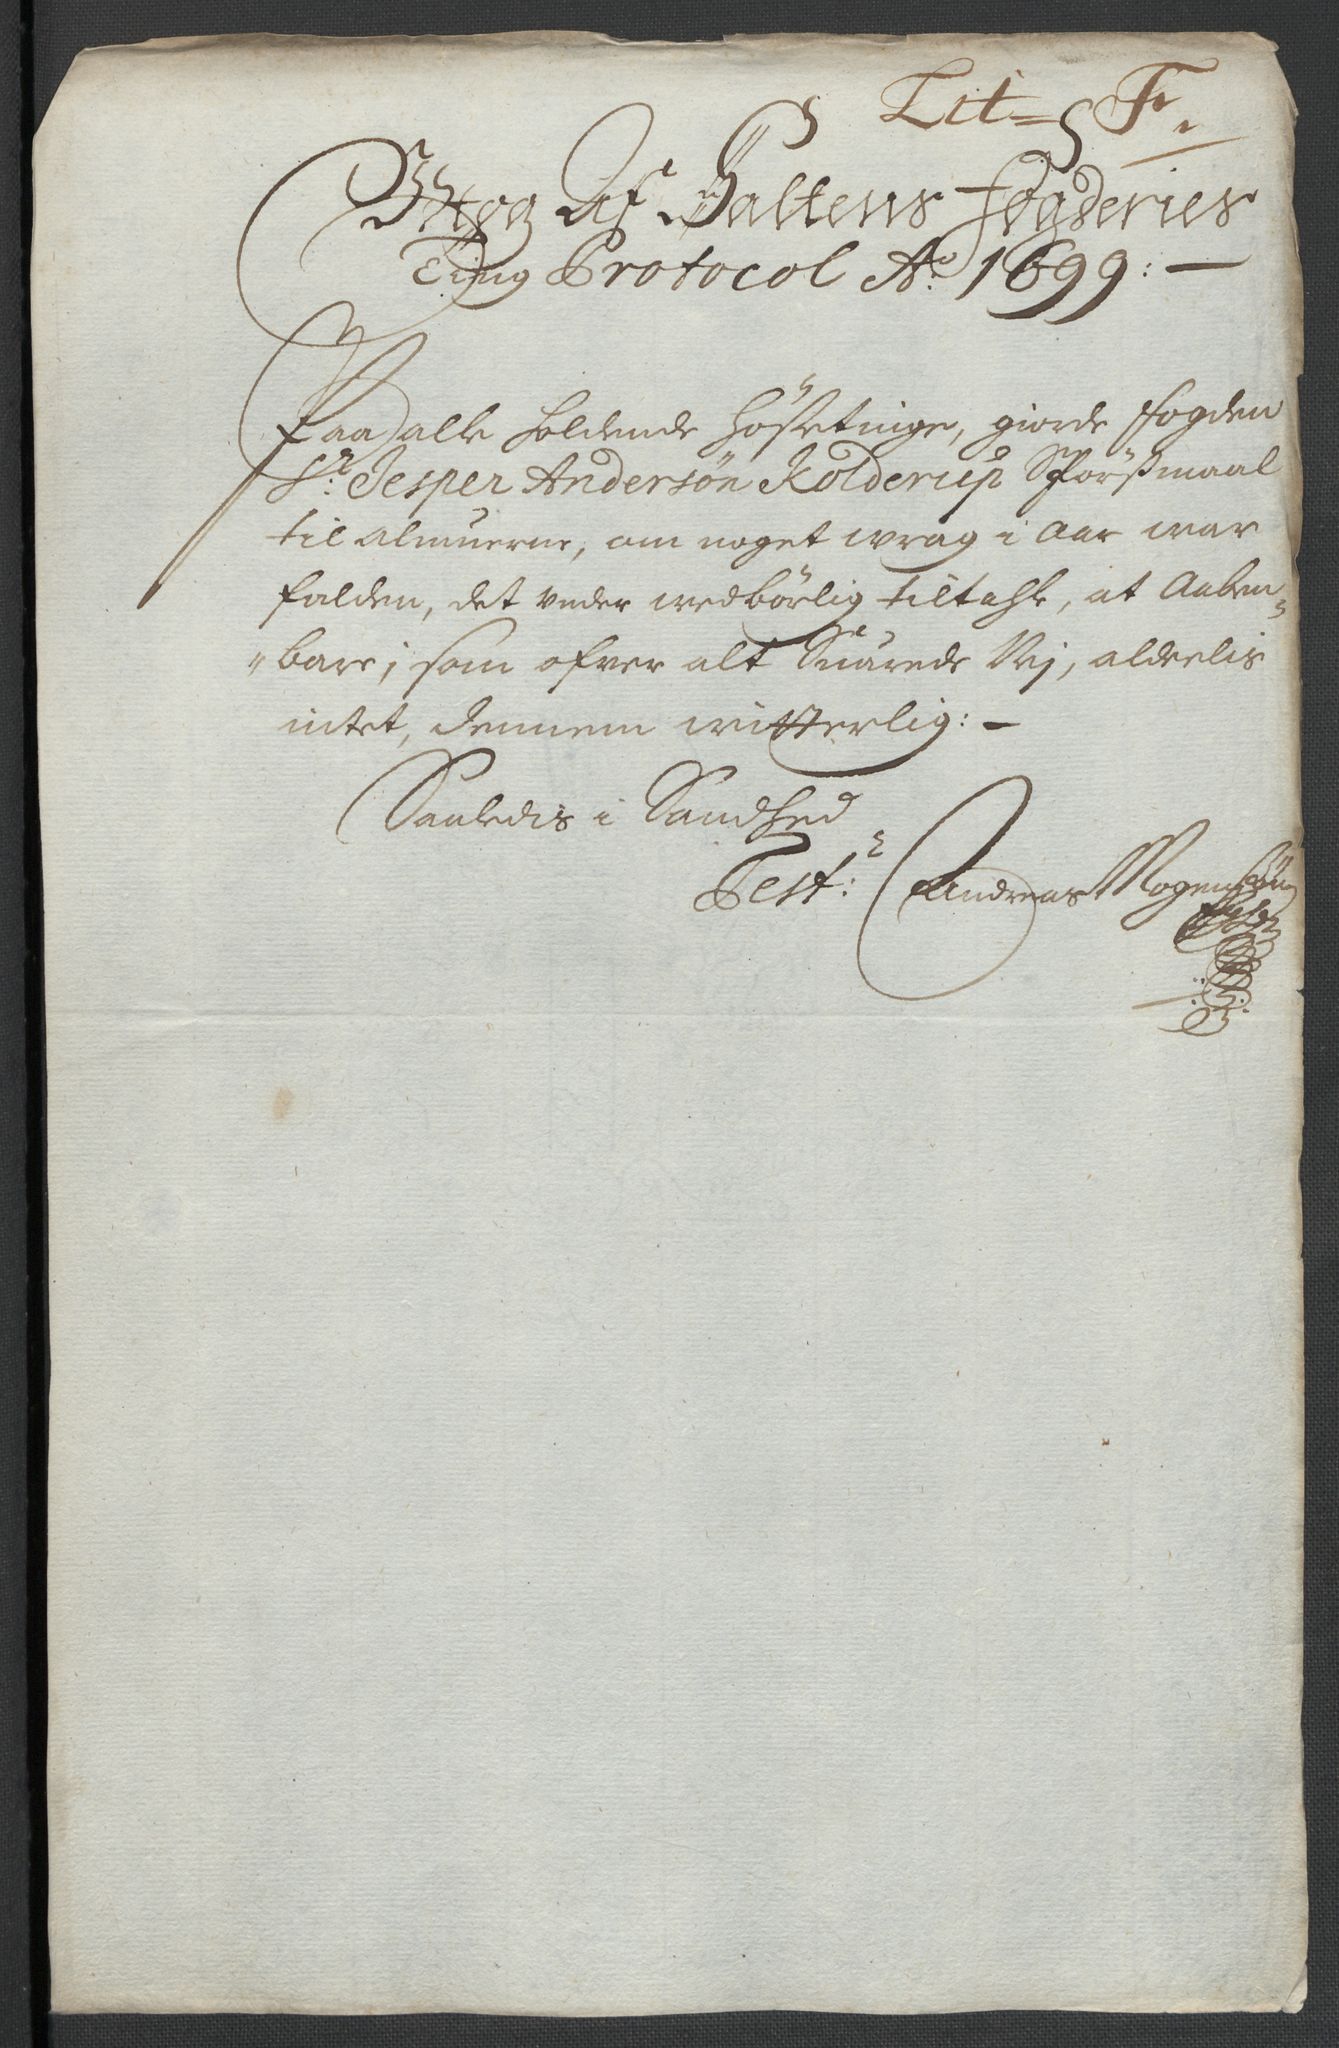 Lit= F.
Udtog Af Saltens Fogderies
Ting Protocol Ao. 1699: —
Paa alle holdende Høstetinge, giorde Fogden
Sr: Jesper Andersøn Kolderup Spørßmaal
til almuerne, om noget wrag i Aar war
falden, det under wedbørlig tiltahle, at Aaben-
-bare; som ofver alt Suarede Nej, aldrelis
intet, dennem witterlig: —
Saaledis i Sandhed
Test: Andreas Mogensøn